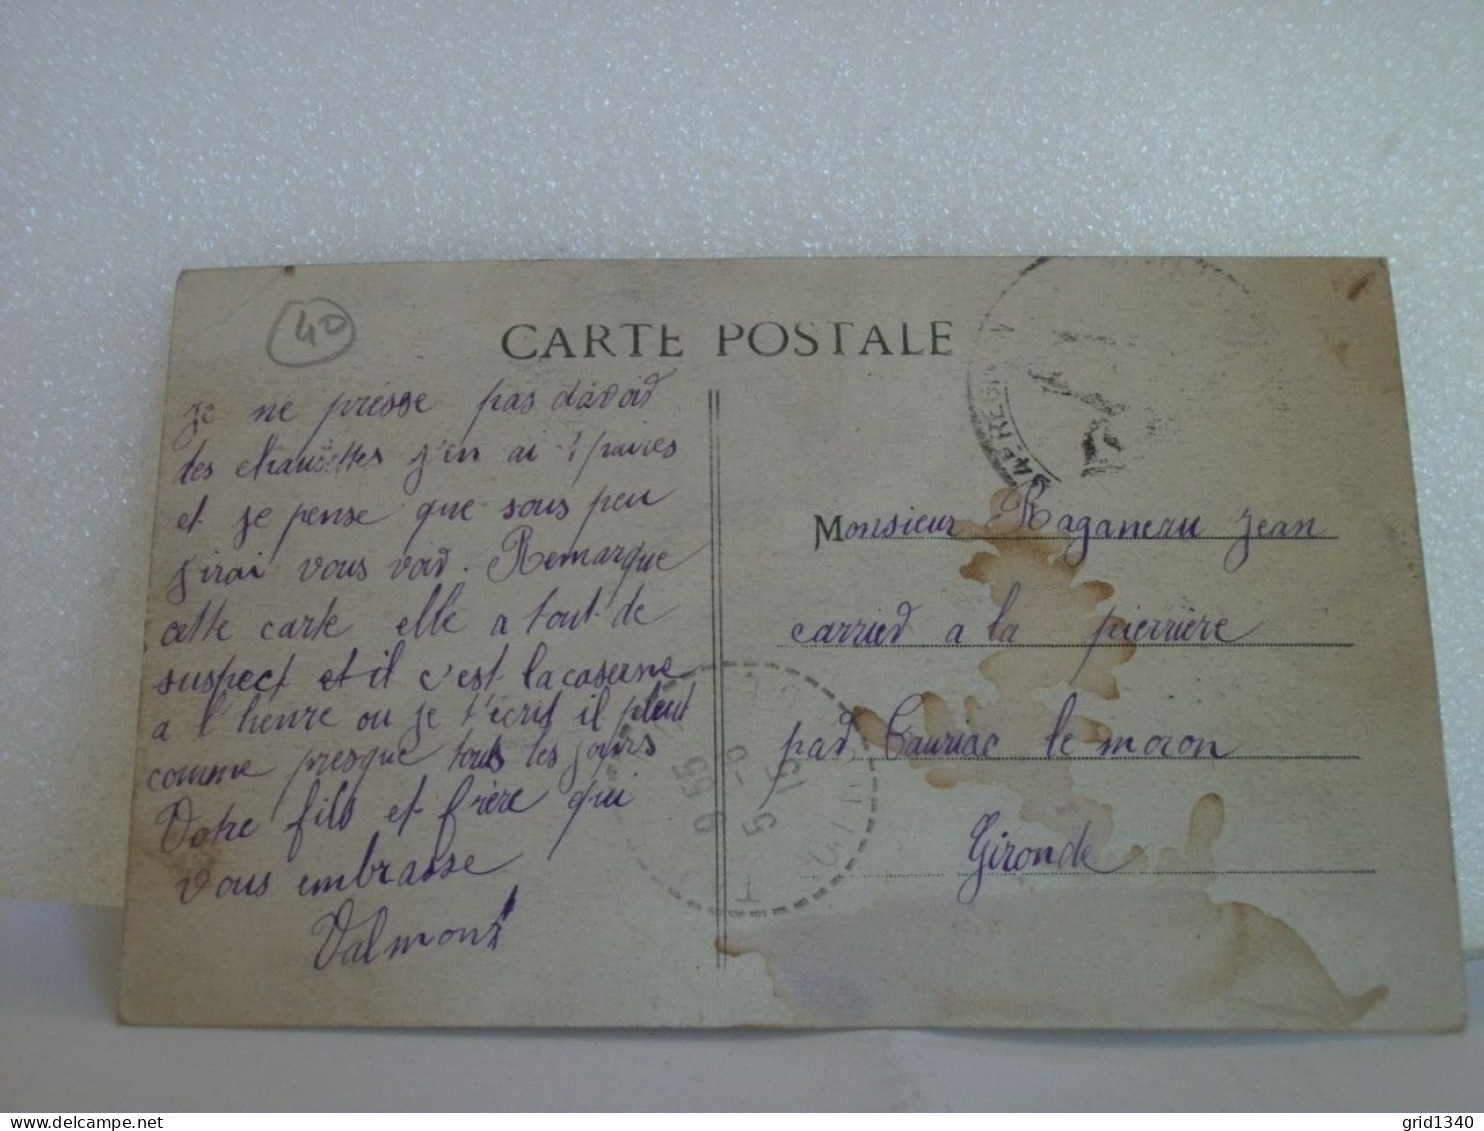 40
CARTE POSTALE
Je ne presse pas d'avoir
des chausettes j'en ai paires
et je pense que sous peu
j'irai vous voir. Remarque
cette carte elle a tout de
suspect et il c'est la caserne
a l'heure ou je t'écrit il pleut
comme presque tous les jours
Votre fils et frère qui
vous embrasse
Valmont
Monsieur Raganeau Jean
carrier a la pierrière
par Cauriac le moron
Gironde
9 55
5 -6
15
grid1340